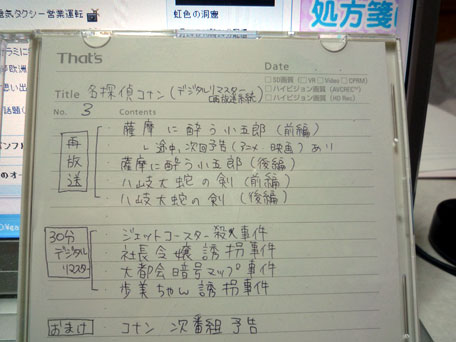 気タクシー営業運転
虹色の洞窟
処方箋
That's
Date
Title 名探偵コナン(デジタルリマスター
□SD画質(□VR□Video□CPRM)
□ハイビジョン画質(AVCREC™)
□ハイビジョン画質(HD Rec)
No. 3
Contents
再放送
薩摩に酔う小五郎(前編)
途中、次回予告(アニメ 映画)あり
薩摩に酔う小五郎(後編)
八岐大蛇の剣(前編)
八岐大蛇の剣(後編)
30分
デジタル
リマスター
ジェットコースター殺人事件
社長令嬢誘拐事件
大都会暗号マップ事件
歩美ちゃん誘拐事件
おまけ
コナン 次番組予告